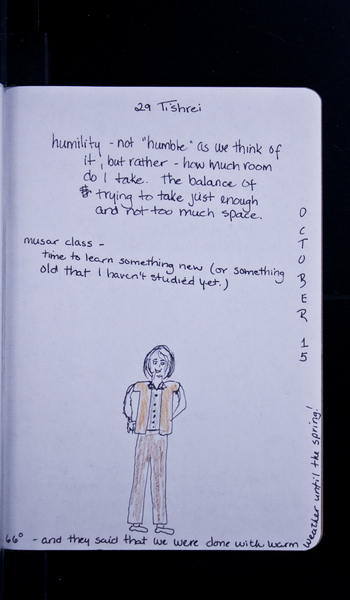 29 Tishrei
humility - not "humble" as we think of
it, but rather - how much room
do I take. The balance of
trying to take just enough
and not too much space.
musar class -
time to learn something new (or something
old that I haven't studied yet.)
OCTOBER 15
66° - and they said that we were done with warm
weather until the spring!